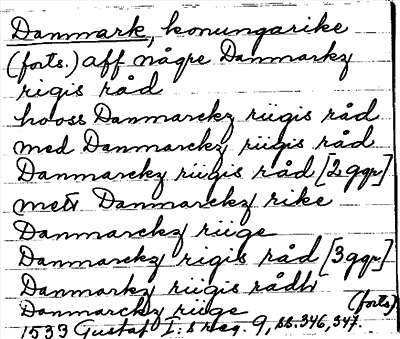 Danmark, konungarike
(forts.) aff någre Danmarkz
rigis råd
hooss Danmarckz riigis råd
med Danmarckz riigis råd
Danmarckz riigis råd [2 ggr]
mett Danmarckz rike
Danmarckz riige
Danmarckz rigis råd [3 ggr]
Danmarkz riigis rådh
Danmarckz riige (forts.)
1533 Gustaf I:s reg. 9, ss. 346, 347.